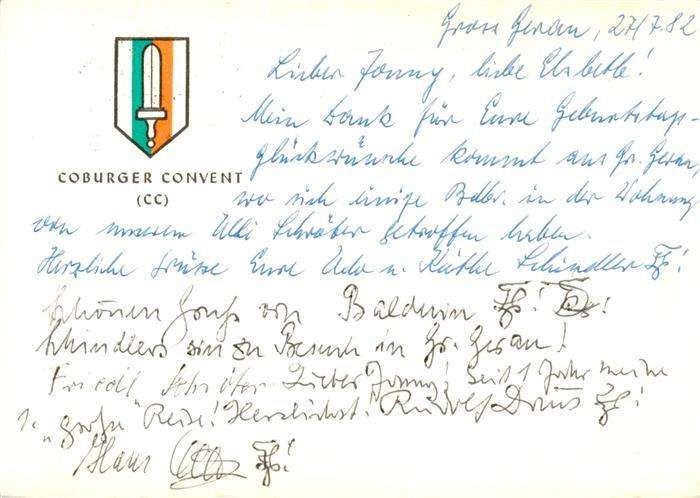 Gross Gerau, 27/7.82
Lieber Jonny, liebe Elsbeth!
Mein Dank für Eure Geburtstags-
glückwünsche kommt aus Gr. Gerau,
COBURGER CONVENT
(CC)
wo sich einige Bdbr. in der Wohnung
von unserem Ulli Schröter getroffen haben.
Herzliche Grüße Eure Udo u. Käthe Schindler
Schönen Gruß von Baldwin
Schindlers sin zu Besuch in Gr. Gerau!
Friedl Schröter Lieber Jonny! Seit 1 Jahr meine
1. "große" Reise! Herzlichst! Rudolf
Hans